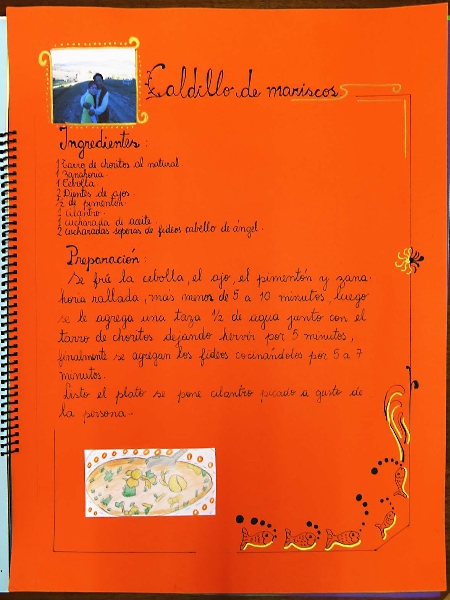 Caldillo de mariscos
Ingredientes:
1 Tarro de choritos al natural
1 Zanahoria.
1 Cebolla
2 Dientes de ajos.
½ de pimentón.
1 cilantro.
1 cucharada de aceite.
2 cucharadas soperas de fideos cabello de ángel.
Preparación:
Se frie la cebolla, el ajo, el pimentón y zana-
horia rallada, mas menos de 5 a 10 minutos, luego
se le agrega una taza ½ de agua junto con el
tarro de choritos dejando hervir por 5 minutos,
finalmente se agregan los fideos cocinándolos por 5 a 7
minutos.
Listo el plato se pone cilantro picado a gusto de
la persona.-